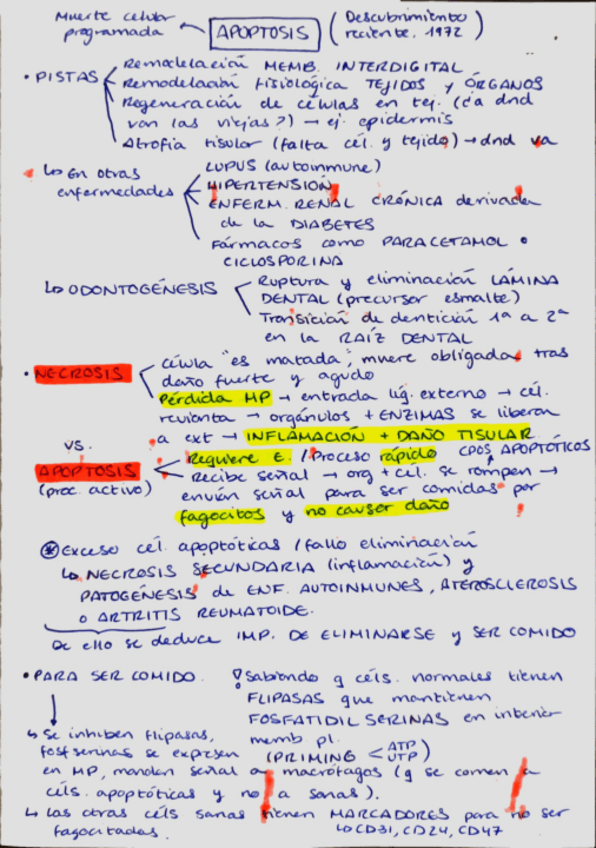 Muerte celular programada ← APOPTOSIS (Descubrimiento reciente. 1972)
• PISTAS
Remodelación MEMB. INTERDIGITAL
Remodelación fisiológica TEJIDOS y ÓRGANOS
Regeneración de células en tej. (¿a dnd
van las viejas?) → ej. epidermis
Atrofia tisular (falta cél. y tejido) → dnd va
↳ En otras enfermedades
LUPUS (autoinmune)
HIPERTENSIÓN
ENFERM. RENAL CRÓNICA derivada
de la DIABETES
Fármacos como PARACETAMOL o
CICLOSPORINA
↳ ODONTOGÉNESIS
Ruptura y eliminación LÁMINA
DENTAL (precursor esmalte)
Transición de dentición 1ª a 2ª
en la RAÍZ DENTAL
• NECROSIS
célula "es matada", muere obligada tras
daño fuerte y agudo
Pérdida MP → entrada líq. externo → cél.
revienta → orgánulos + ENZIMAS se liberan
a ext → INFLAMACIÓN + DAÑO TISULAR
vs.
APOPTOSIS
(proc. activo)
Requiere E. / Proceso rápido CPOS APOPTÓTICOS
Recibe señal → org + cél. se rompen →
envían señal para ser comidas por
fagocitos y no causar daño
* Exceso cél. apoptóticas / fallo eliminación
↳ NECROSIS SECUNDARIA (inflamación) y
PATOGÉNESIS de ENF. AUTOINMUNES, ATEROSCLEROSIS
O ARTRITIS REUMATOIDE.
De ello se deduce IMP. DE ELIMINARSE y SER COMIDO
• PARA SER COMIDO.
! Sabiendo q céls. normales tienen
FLIPASAS que mantienen
FOSFATIDIL SERINAS en interior
memb pl.
↳ Se inhiben flipasas,
fosf serinas se expresen (PRIMING < ATP UTP)
en MP, manden señal a macrófagos (q se comen a
céls. apoptóticas y no a sanas).
↳ Las otras céls sanas tienen MARCADORES para no ser
fagocitadas. ↳ CD31, CD24, CD47